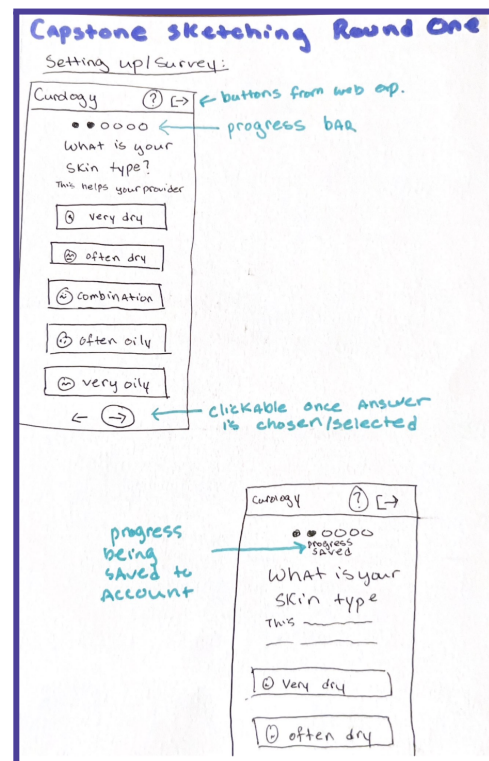 Capstone sketching Round One
Setting up/survey:
Curology ? [→ ← buttons from web exp.
← progress bar
What is your
Skin type?
This helps your provider
very dry
often dry
combination
often oily
very oily
← → ← clickable once answer
is chosen/selected
Curology ? [→
progress
saved
progress
being
saved to
account
What is your
Skin type
This
Very dry
often dry